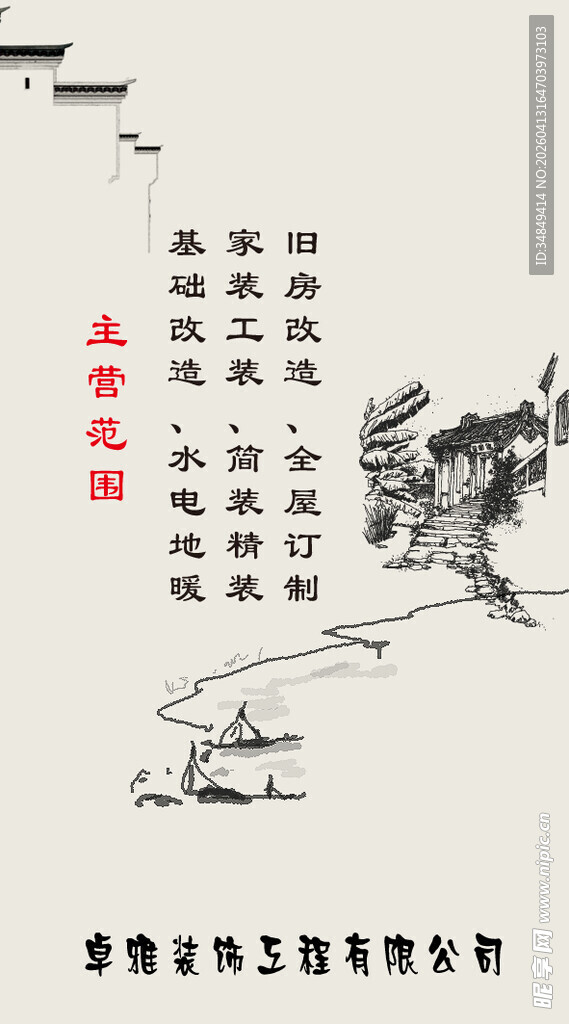 主营范围
旧房改造、全屋订制
家装工装、简装精装
基础改造、水电地暖
卓雅装饰工程有限公司
ID:34849414 NO:20260413164703973103
昵享网 www.nipic.cn